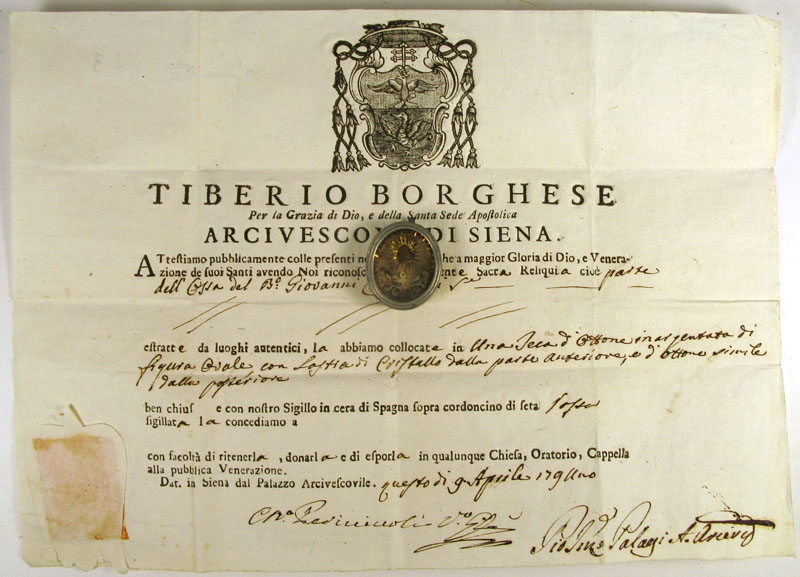 TIBERIO BORGHESE
Per la Grazia di Dio, e della Santa Sede Apostolica
ARCIVESCO DI SIENA.
ATtestiamo pubblicamente colle presenti no he a maggior Gloria di Dio, e Venera-
zione de suoi Santi avendo Noi riconosc nte Sacra Reliquia cioè parte
dell' Ossa del Bº. Giovanni
estratte da luoghi autentici, la abbiamo collocata in Una Teca d'Ottone inargentata di
figura Ovale con Lastra di Cristallo dalla parte anteriore, e d'Ottone simile
dalla posteriore
ben chius e con nostro Sigillo in cera di Spagna sopra cordoncino di seta rossa
sigillata la concediamo a
con facoltà di ritenerla, donarla e di esporla in qualunque Chiesa, Oratorio, Cappella
alla pubblica Venerazione.
Dat. in Siena dal Palazzo Arcivescovile. questo dì 9 Aprile